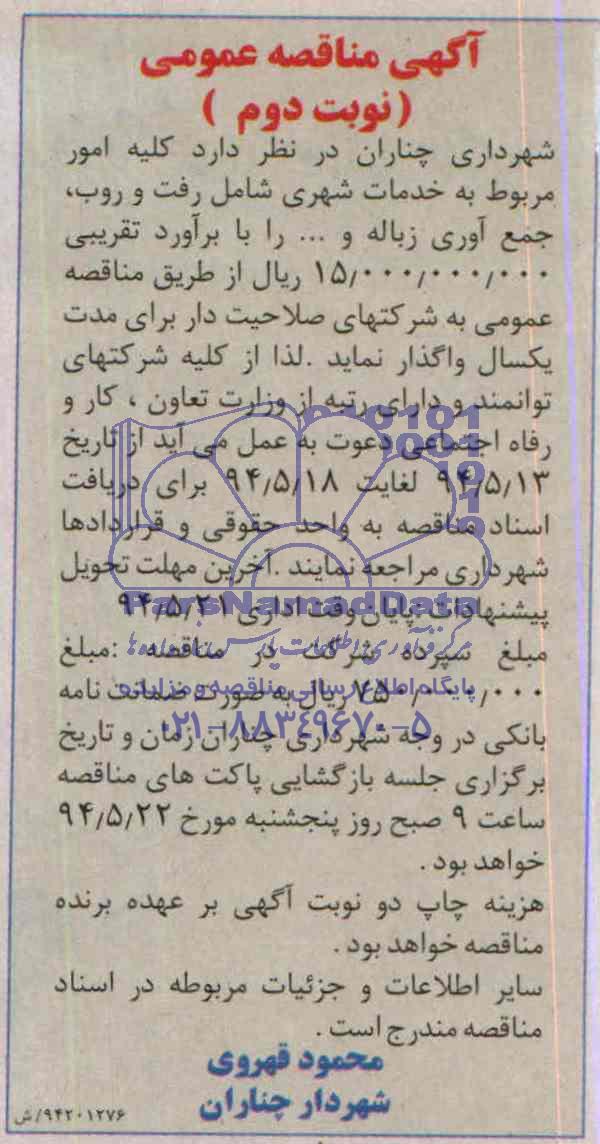 آگهی مناقصه عمومی
(نوبت دوم )
شهرداری چناران در نظر دارد کلیه امور
مربوط به خدمات شهری شامل رفت و روب،
جمع آوری زباله و ... را با برآورد تقریبی
۱۵/۰۰۰/۰۰۰/۰۰۰ ریال از طریق مناقصه
عمومی به شرکتهای صلاحیت دار برای مدت
یکسال واگذار نماید .لذا از کلیه شرکتهای
توانمند و دارای رتبه از وزارت تعاون ، کار و
رفاه اجتماعی دعوت به عمل می آید از تاریخ
۹۴/۵/۱۳ لغایت ۹۴/۵/۱۸ برای دریافت
اسناد مناقصه به واحد حقوقی و قراردادها
شهرداری مراجعه نمایند .آخرین مهلت تحویل
پیشنهادات :پایان وقت اداری ۹۴/۵/۲۱
ParsNamadData
مرکز فرآوری اطلاعات پارس نماد داده ها
مبلغ سپرده شرکت در مناقصه :مبلغ
۷۵۰/۰۰۰/۰۰۰ ریال به صورت ضمانت نامه
پایگاه اطلاع رسانی مناقصه و مزایده
۰۲۱-۸۸۳۴۹۶۷۰-۵
بانکی در وجه شهرداری چناران زمان و تاریخ
برگزاری جلسه بازگشایی پاکت های مناقصه
ساعت ۹ صبح روز پنجشنبه مورخ ۹۴/۵/۲۲
خواهد بود .
هزینه چاپ دو نوبت آگهی بر عهده برنده
مناقصه خواهد بود .
سایر اطلاعات و جزئیات مربوطه در اسناد
مناقصه مندرج است .
محمود قهروی
شهردار چناران
۹۴۲۰۱۲۷۶/ش